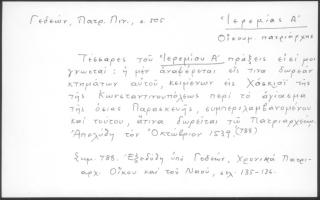 Γεδεών, Πατρ. Πιν., σ. 505
Ἱερεμίας Α΄
Οἰκουμ. πατριάρχης
Τέσσαρες τοῦ Ἱερεμίου Α΄ πράξεις εἰσί μοι
γνωσταί: ἡ μὲν ἀναφέρεται εἴς τινα δωρεὰν
κτημάτων αὐτοῦ, κειμένων εἰς Χάσκιοϊ τῆς
τῆς Κωνσταντινουπόλεως περὶ τὸ ἁγίασμα
τῆς ὁσίας Παρασκευῆς, συμπεριλαμβανομένου
καὶ τούτου, ἅτινα δωρεῖται τῷ Πατριαρχείῳ.
Ἀπελύθη τὸν Ὀκτώβριον 1539.(788)
Σημ. 788. Ἐξεδόθη ὑπὸ Γεδεών, Χρονικὰ Πατρι-
αρχ. Οἴκου καὶ τοῦ Ναοῦ, σελ. 135-136.